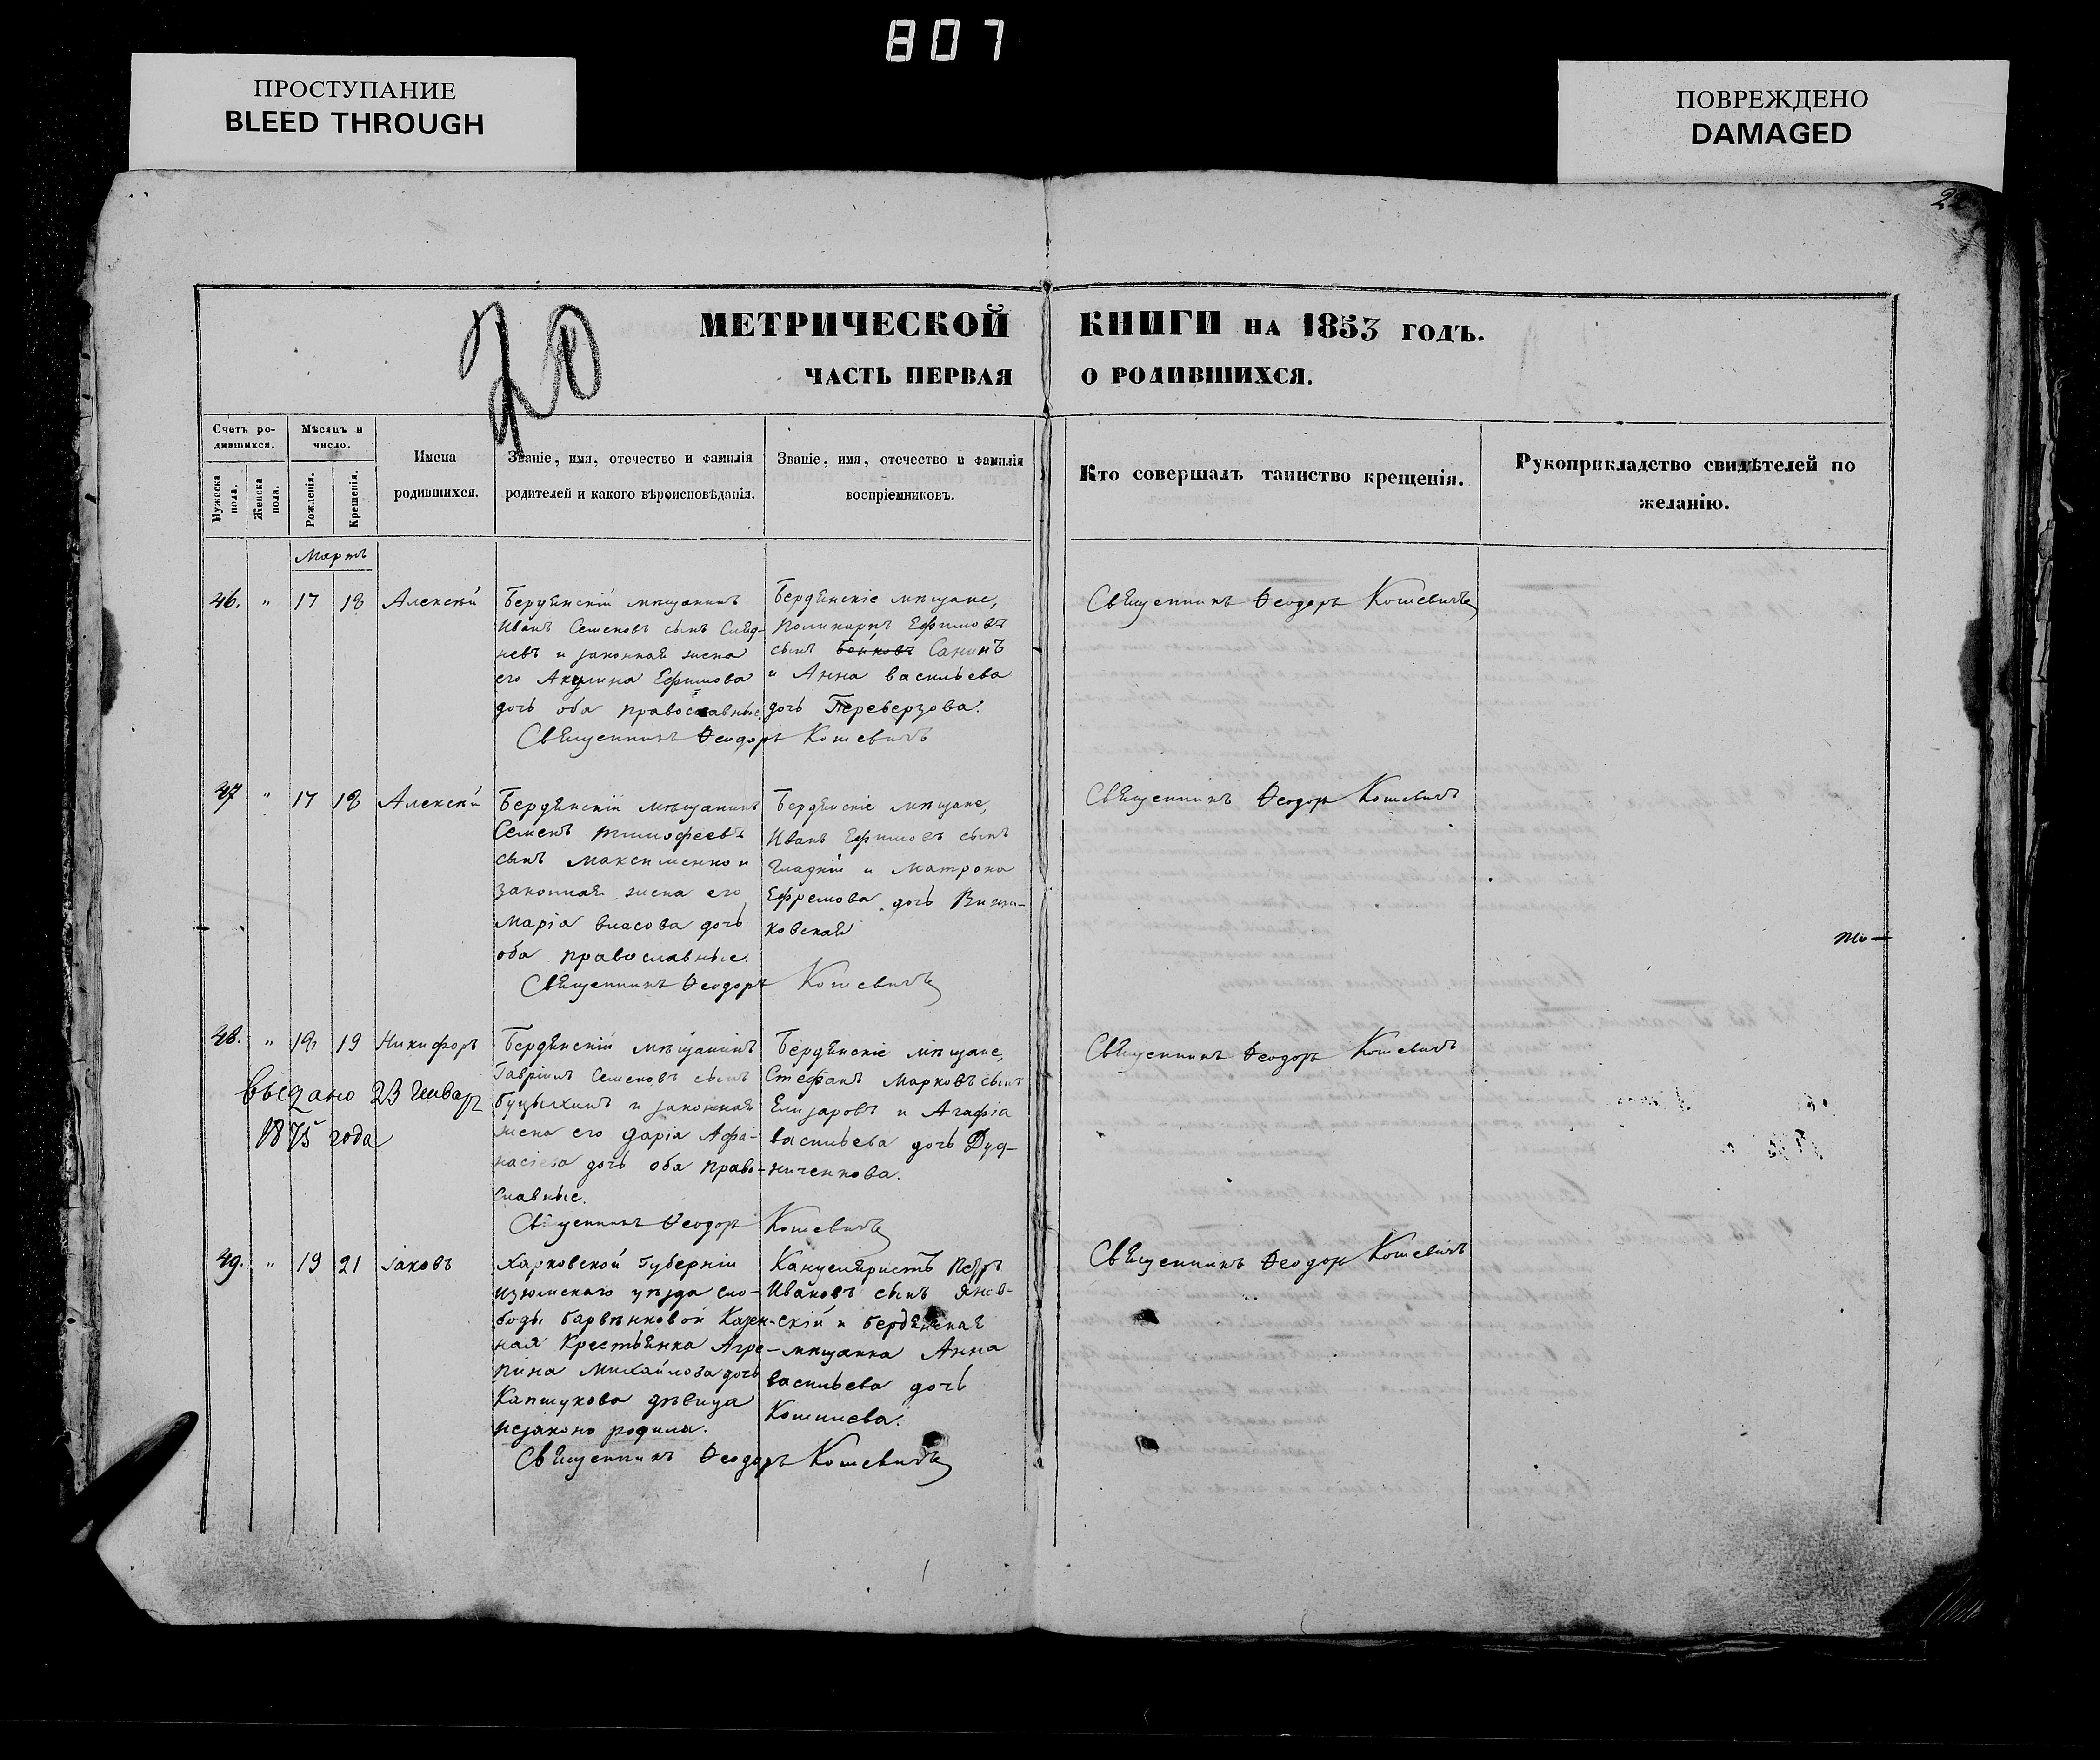 807
ПРОСТУПАНИЕ
BLEED THROUGH
ПОВРЕЖДЕНО
DAMAGED
22
20
МЕТРИЧЕСКОЙ КНИГИ НА 1853 ГОДЪ.
ЧАСТЬ ПЕРВАЯ О РОДИВШИХСЯ.
Счетъ ро-
дившихся.
Мужеска пола.
Женска пола.
Мѣсяцъ и
число.
Рожденія.
Крещенія.
Имена
родившихся.
Званіе, имя, отечество и фамилія
родителей и какого вѣроисповѣданія.
Званіе, имя, отечество и фамилія
воспріемниковъ.
Кто совершалъ таинство крещенія.
Рукоприкладство свидѣтелей по
желанію.
Мартъ
46. " 17 18 Алексѣй
Бердянскій мѣщанинъ
Иванъ Семеновъ сынъ
и законная жена
его Акулина Ефимова
дочь оба православные.
Бердянскіе мѣщане,
Поликарпъ Ефимовъ
сынъ Бойковъ Санинъ
и Анна Васильева
дочь Переверзова.
Священникъ Ѳеодоръ Кошевичъ
Священникъ Ѳеодоръ Кошевичъ
47 " 17 18 Алексѣй
Бердянскій мѣщанинъ
Семенъ Тимофеевъ
сынъ Максименко и
законная жена его
Марія Власова дочь
оба православные.
Бердянскіе мѣщане,
Иванъ Ефимовъ сынъ
Гладкій и Матрона
Ефремова дочь
ковская
Священникъ Ѳеодоръ Кошевичъ
Священникъ Ѳеодоръ Кошевичъ
48. " 18 19 Никифоръ
Выдано 23 Январ
1875 года
Бердянскій мѣщанинъ
Гавріилъ Семеновъ сынъ
и законная
жена его Дарія Афа-
насіева дочь оба право-
славные.
Бердянскіе мѣщане,
Стефанъ Марковъ сынъ
Елизаровъ и Агафіа
Васильева дочь Дуд-
ниченкова.
Священникъ Ѳеодоръ Кошевичъ
Священникъ Ѳеодоръ Кошевичъ
49. " 19 21 Іаковъ
Харковской Губерніи
Изюмскаго уѣзда сло-
боды Барвѣнковой Казен-
ная Крестьянка Агре-
пина Михайлова дочь
Капшукова дѣвица
незаконо родила.
Канцеляристъ Петръ
Ивановъ сынъ Янов-
скій и Бердянская
мѣщанка Анна
Васильева дочь
Кошлева.
Священникъ Ѳеодоръ Кошевичъ
Священникъ Ѳеодоръ Кошевичъ